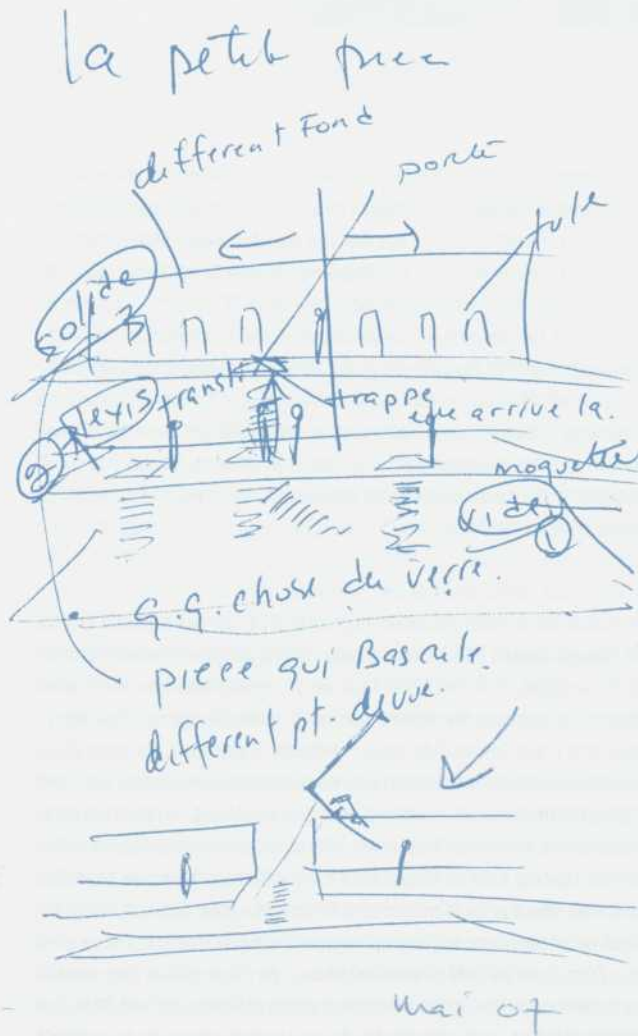 la petit piece
different Fond
porte
tule
solide
plexis
trappe
que arrive la.
moquette
②
vide
①
q.q. chose du verre.
piece qui Bascule.
different pt. de vue.
mai 07